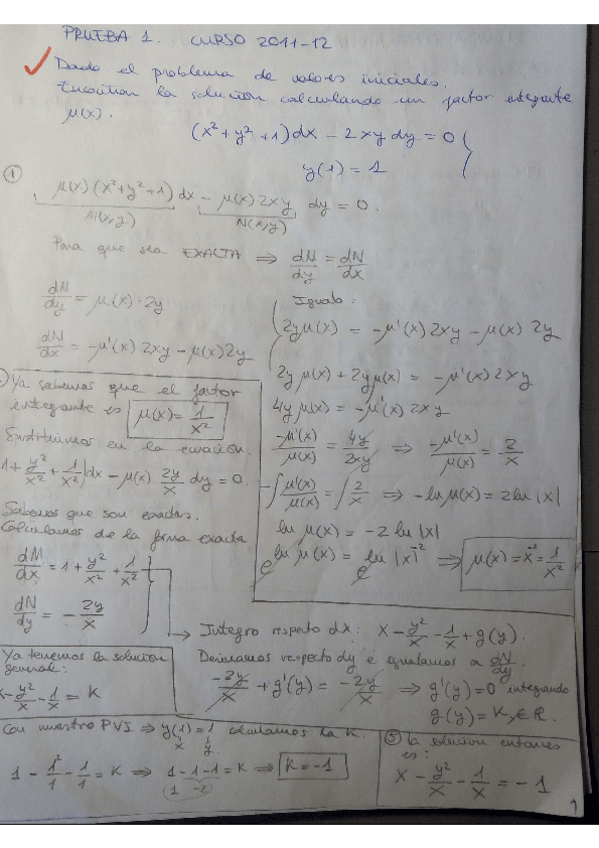 PRUEBA 1. CURSO 2011-12
Dado el problema de valores iniciales.
Encontrar la solución calculando un factor integrante
μ(x).
(x²+y²+1)dx - 2xy dy = 0
y(1) = 1
① μ(x)(x²+y²+1) dx - μ(x) 2xy dy = 0.
M(x,y) N(x,y)
Para que sea EXACTA ⟹ dN/dy = dN/dx
dN/dy = μ(x)·2y
dN/dx = -μ'(x) 2xy - μ(x) 2y
Igualo:
2yμ(x) = -μ'(x) 2xy - μ(x) 2y
2y μ(x) + 2y μ(x) = -μ'(x) 2xy
4y μ(x) = -μ'(x) 2xy
-μ'(x)/μ(x) = 4y/2xy ⟹ -μ'(x)/μ(x) = 2/x
-∫ μ'(x)/μ(x) = ∫ 2/x ⟹ -ln μ(x) = 2 ln |x|
ln μ(x) = -2 ln |x|
e^ln μ(x) = e^ln |x|⁻² ⟹ μ(x) = x⁻² = 1/x²
Ya sabemos que el factor
integrante es μ(x) = 1/x²
Sustituimos en la ecuación.
1 + y²/x² + 1/x² |dx - μ(x) 2y/x dy = 0.
Sabemos que son exactas.
Calculamos de la forma exacta
dM/dx = 1 + y²/x² + 1/x²
dN/dy = -2y/x
Integro respecto dx: x - y²/x - 1/x + g(y).
Derivamos respecto dy e igualamos a dN/dy
-2y/x + g'(y) = -2y/x ⟹ g'(y) = 0 integrando
g(y) = K, ∈ R.
Ya tenemos la solución
general:
x - y²/x - 1/x = K
Con nuestro PVI ⟹ y(1) = 1 calculamos la K.
x y
1 - 1²/1 - 1/1 = K ⟹ 1 - 1 - 1 = K ⟹ K = -1
1 -2
⑤ La solución entonces
es:
x - y²/x - 1/x = -1
1